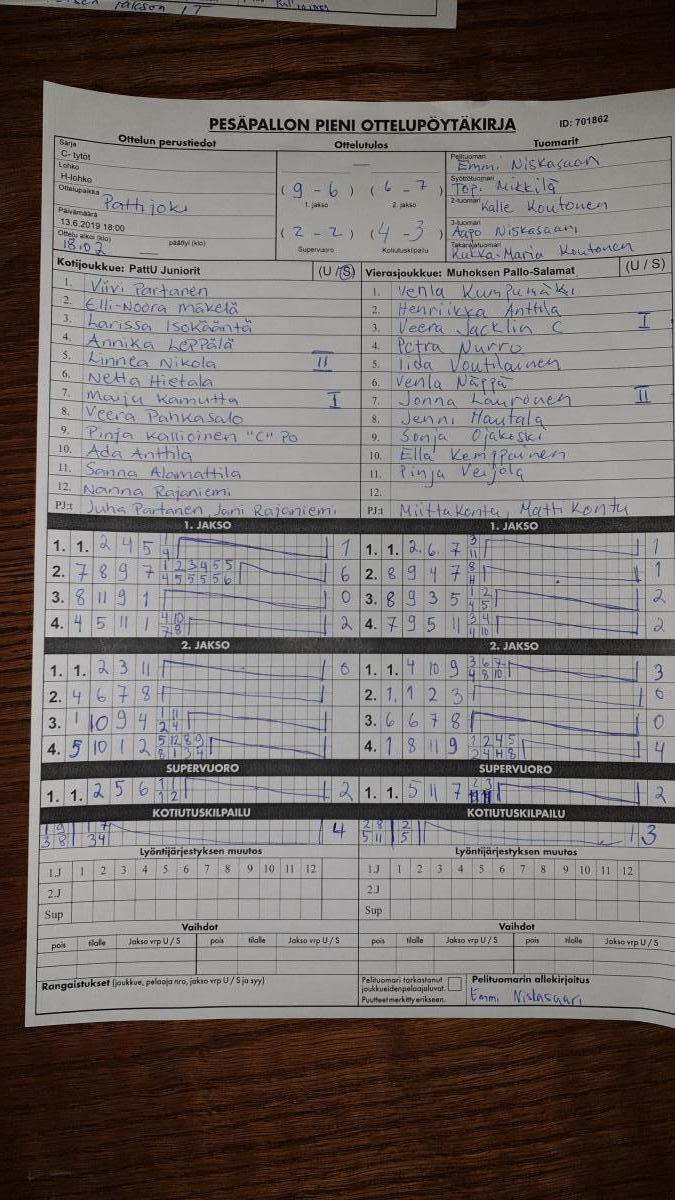 PESÄPALLON PIENI OTTELUPÖYTÄKIRJA ID: 701862
Ottelun perustiedot Ottelutulos Tuomarit
Sarja
C- tytöt
Lohko
H-lohko
Ottelupaikka
Pattijoki
Päivämäärä
13.6.2019 18:00
Ottelu alkoi (klo) päättyi (klo)
18.02
( 9 - 6 ) ( 6 - 7 )
1. jakso 2. jakso
( 2 - 2 ) ( 4 - 3 )
Supervuoro Kotiutuskilpailu
Pelituomari
Emmi Niskasaari
Syöttötuomari
Topi Mikkilä
2-tuomari
Kalle Koutonen
3-tuomari
Aapo Niskasaari
Takarajatuomari
Kukka-Maria Koutonen
Kotijoukkue: PattU Juniorit (U / S)
1. Viivi Partanen
2. Elli-Noora Mäkelä
3. Larissa Isokääntä
4. Annika Leppälä
5. Linnea Nikola II
6. Netta Hietala
7. Maija Kamutta I
8. Veera Pahkasalo
9. Pinja Kallioinen "C" Po
10. Ada Anthla
11. Sanna Alamattila
12. Nanna Rajaniemi
PJ:t Juha Partanen, Jani Rajaniemi
Vierasjoukkue: Muhoksen Pallo-Salamat (U / S)
1. Venla Kumpumäki
2. Henriikka Anttila
3. Veera Jacklin C I
4. Petra Nurro
5. Iida Voutilainen
6. Venla Näppä
7. Jonna Lauronen II
8. Jenni Hautala
9. Sonja Ojakoski
10. Ella Kemppainen
11. Pinja Veijola
12.
PJ:t Miitta Kontu, Matti Kontu
1. JAKSO 1. JAKSO
1. 1. 2 4 5 1
2. 7 8 9 7 6
3. 8 11 9 1 0
4. 4 5 11 1 2
1. 1. 2. 6. 7 1
2. 8 9 4 7 1
3. 8 9 3 5 2
4. 7 9 5 11 2
2. JAKSO 2. JAKSO
1. 1. 2 3 11 0
2. 4 6 7 8 1
3. 1 10 9 4 1
4. 5 10 1 2 4
1. 1. 4 10 9 3
2. 1, 1 2 3 0
3. 6 6 7 8 0
4. 1 8 11 9 4
SUPERVUORO SUPERVUORO
1. 1. 2 5 6 2
1. 1. 5 11 7 2
KOTIUTUSKILPAILU KOTIUTUSKILPAILU
4 3
Lyöntijärjestyksen muutos Lyöntijärjestyksen muutos
1.J 1 2 3 4 5 6 7 8 9 10 11 12 1.J 1 2 3 4 5 6 7 8 9 10 11 12
2.J 2.J
Sup Sup
Vaihdot Vaihdot
pois tilalle Jakso vrp U / S pois tilalle Jakso vrp U / S pois tilalle Jakso vrp U / S pois tilalle Jakso vrp U / S
Rangaistukset (joukkue, pelaaja nro, jakso vrp U / S ja syy)
Pelituomari tarkastanut
joukkueidenpelaajaluvat.
Puutteet merkitty erikseen.
Pelituomarin allekirjoitus
Emmi Niskasaari